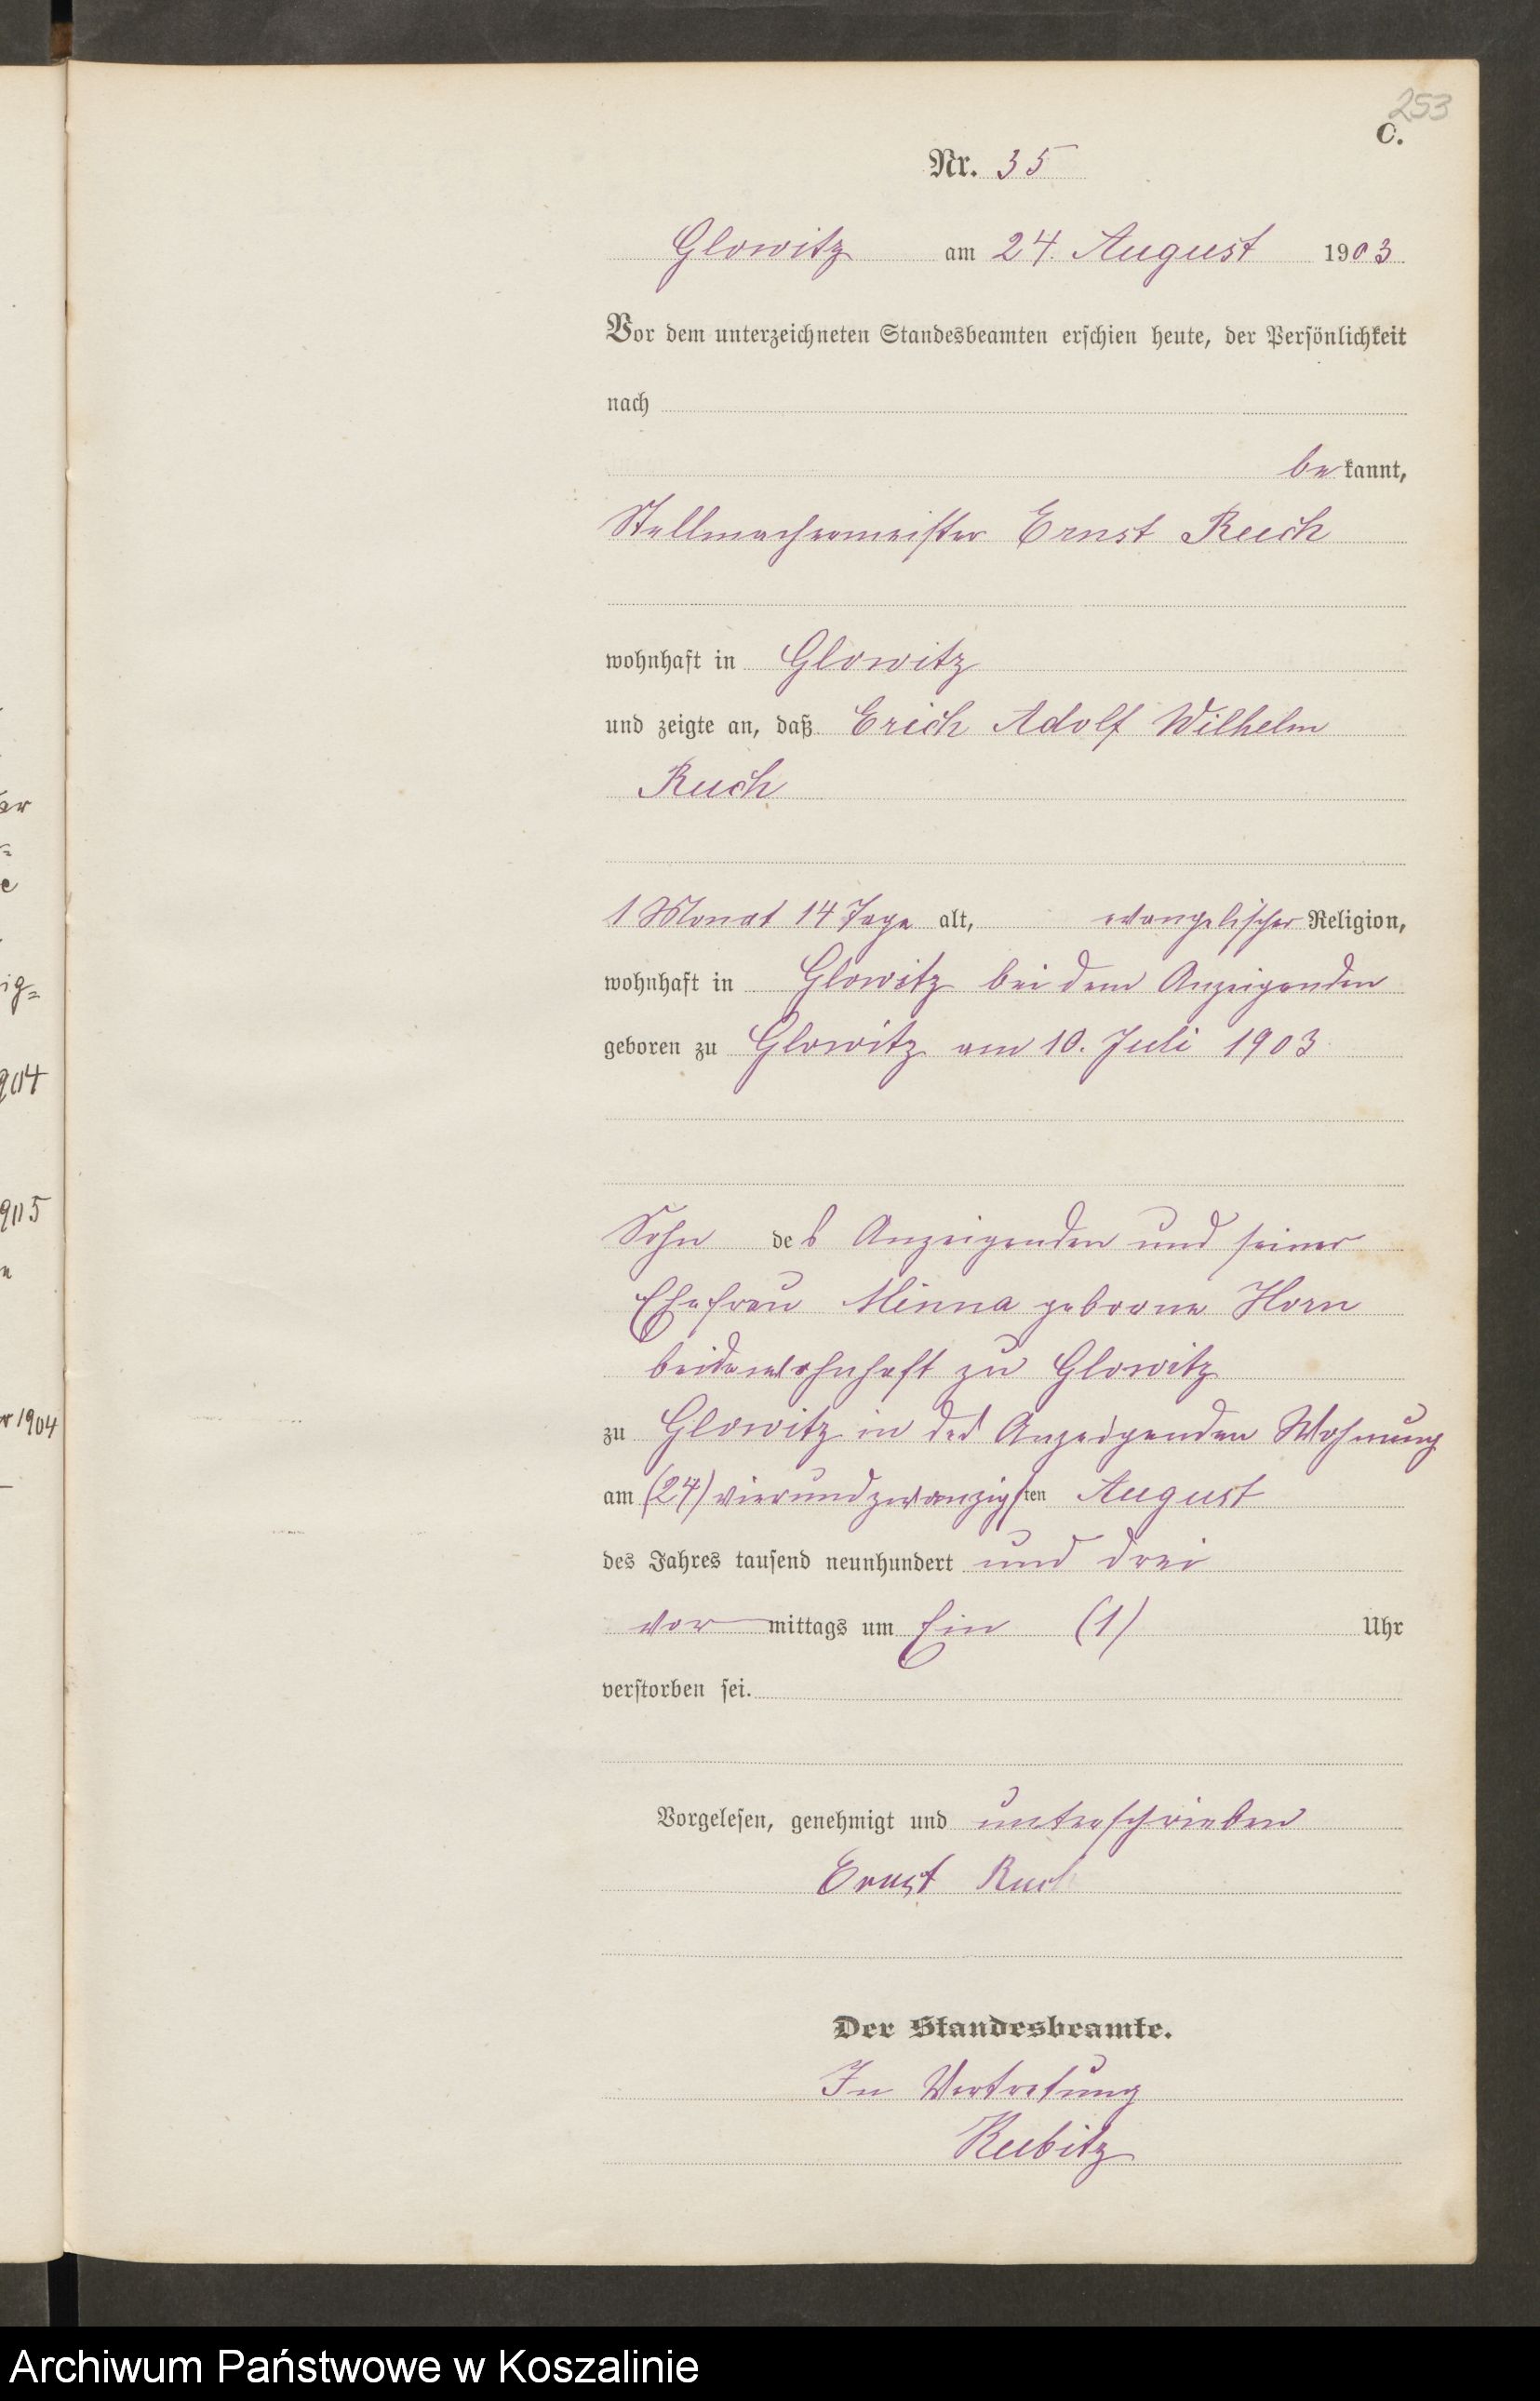 253
C.
Nr. 35
Glowitz am 24. August 1903
Vor dem unterzeichneten Standesbeamten erschien heute, der Persönlichkeit
nach
bekannt,
Stellmachermeister Ernst Ruch
wohnhaft in Glowitz
und zeigte an, daß Erich Adolf Wilhelm
Ruch
1 Monat 14 Tage alt, evangelischer Religion,
wohnhaft in Glowitz bei dem Anzeigenden
geboren zu Glowitz am 10. Juli 1903
Sohn des Anzeigenden und seiner
Ehefrau Minna geborne Horn
beide wohnhaft zu Glowitz
zu Glowitz in des Anzeigenden Wohnung
am (24) vierundzwanzigsten August
des Jahres tausend neunhundert und drei
vor mittags um Ein (1) Uhr
verstorben sei.
Vorgelesen, genehmigt und unterschrieben
Ernst Ruch
Der Standesbeamte.
In Vertretung
Kubitz
er
e
ig=
904
905
r 1904
Archiwum Państwowe w Koszalinie